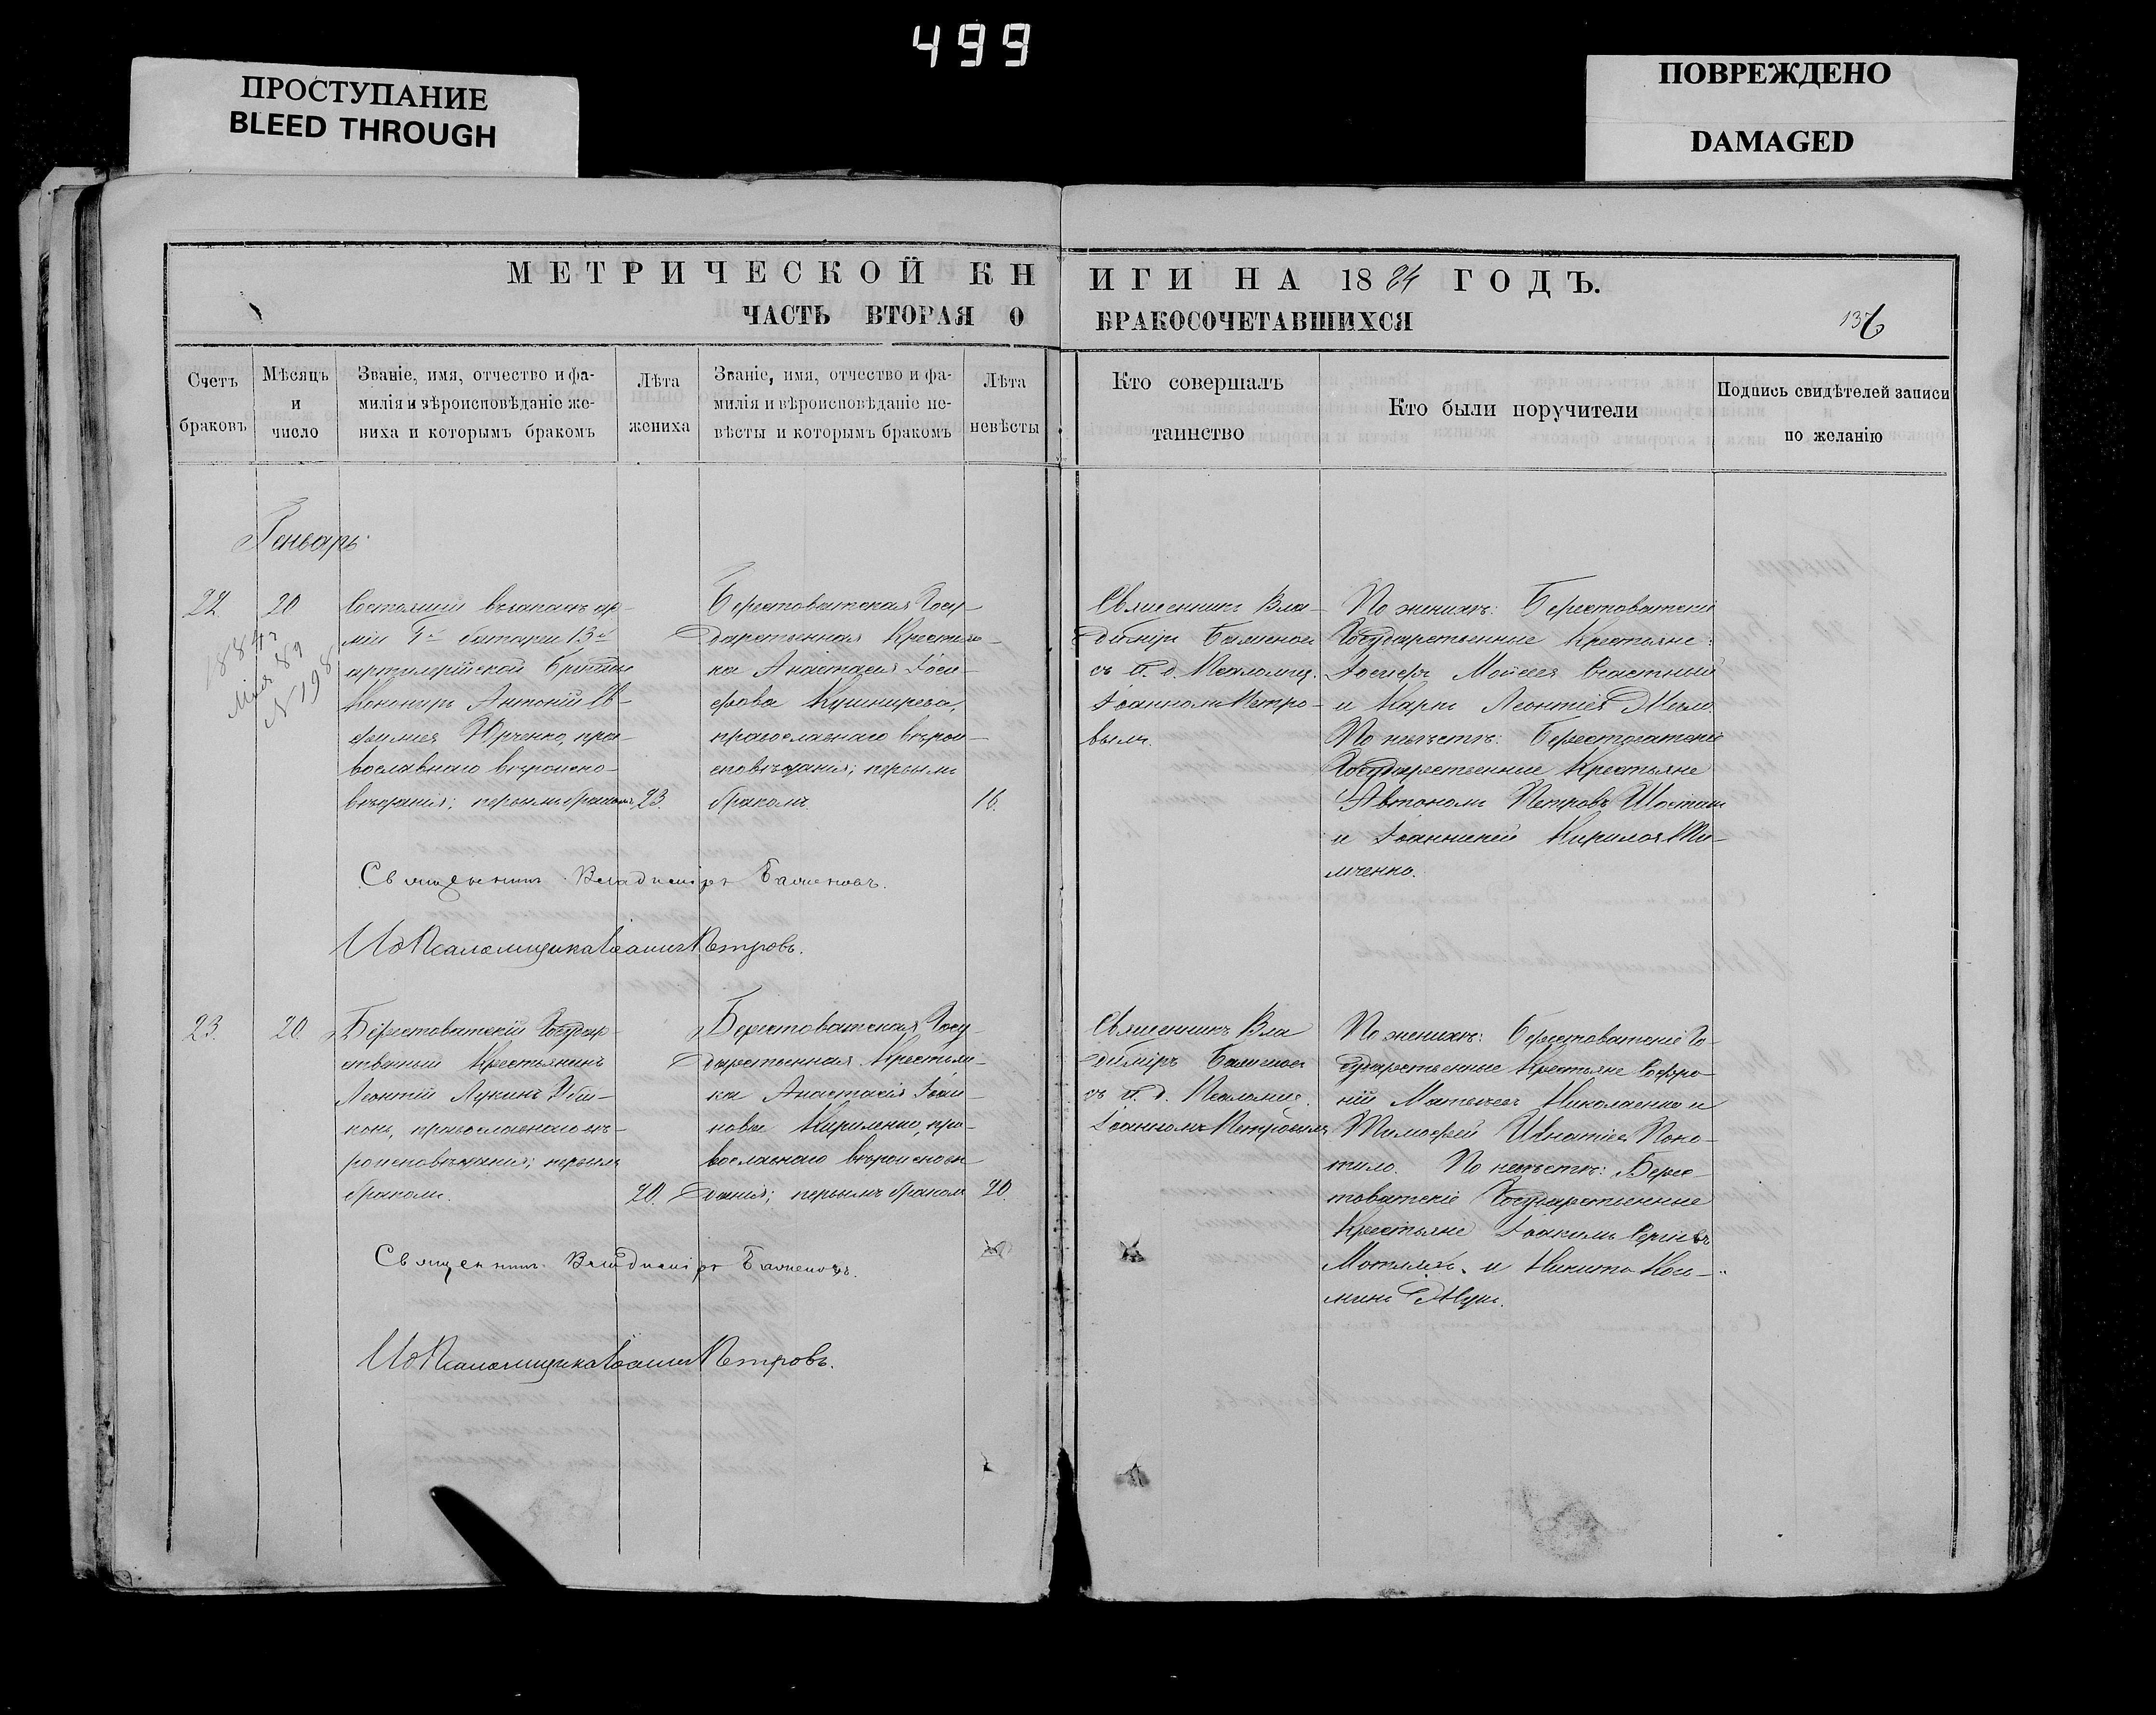 499
ПРОСТУПАНИЕ
BLEED THROUGH
ПОВРЕЖДЕНО
DAMAGED
МЕТРИЧЕСКОЙ КНИГИ НА 1884 ГОДЪ.
ЧАСТЬ ВТОРАЯ О БРАКОСОЧЕТАВШИХСЯ
136
Счетъ
браковъ
Мѣсяцъ
и
число
Званіе, имя, отчество и фа-
милія и вѣроисповѣданіе же-
ниха и которымъ бракомъ
Лѣта
жениха
Званіе, имя, отчество и фа-
милія и вѣроисповѣданіе не-
вѣсты и которымъ бракомъ
Лѣта
невѣсты
Кто совершалъ
таинство
Кто были поручители
Подпись свидѣтелей записи
по желанію
Генварь
22.
20
Состоящій въ запасѣ ар-
міи батареи 13й
артилерійской бригады
Канониръ Антоній Ев-
фиміевъ Юрченко, пра-
вославнаго вѣроиспо-
вѣданія; первымъ бракомъ,
23.
Берестоватская Госу-
дарственная Крестьян-
ка Анастасія Іоси-
фова Кушнирева,
православнаго вѣрои-
сповѣданія; первымъ
бракомъ.
16.
Священникъ Вла-
диміръ
съ и. д. Псаломщ.
Іоанномъ Петро-
вымъ.
По женихѣ: Берестоватскіе
Государственные Крестьяне:
Іосифъ Моисеевъ Счастный
и Карпъ Леонтіевъ
По невѣстѣ: Берестоватскіе
Государственные Крестьяне
Автономъ Петровъ
и Іоанникій Кириловъ
мченко.
1884
№ 198
Священникъ Владиміръ
И д Псаломщика Іоаннъ Петровъ.
23.
20.
Берестоватскій Государ-
ственный Крестьянинъ
Леонтій Лукинъ
православнаго вѣ-
роисповѣданія; первымъ
бракомъ.
20.
Берестоватская Госу-
дарственная Крестьян-
ка Анастасія Іоан-
нова Кириленко, пра-
вославнаго вѣроисповѣ-
данія; первымъ бракомъ
20.
Священникъ Вла
диміръ
съ и. д. Псаломщ.
Іоанномъ Петровымъ
По женихѣ: Берестоватскіе Го-
сударственные Крестьяне Софро-
ній Матвѣевъ Николаенко и
Тимофей Игнатіевъ Поко-
тило. По невѣстѣ: Берес-
товатскіе Государственные
Крестьяне Іоакимъ Сергіевъ
и Никита Кось-
минъ
Священникъ Владиміръ
И д Псаломщика Іоаннъ Петровъ.